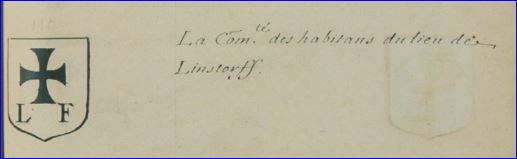 110
La Com.té des habitans du lieu de
Linstorff.
L F